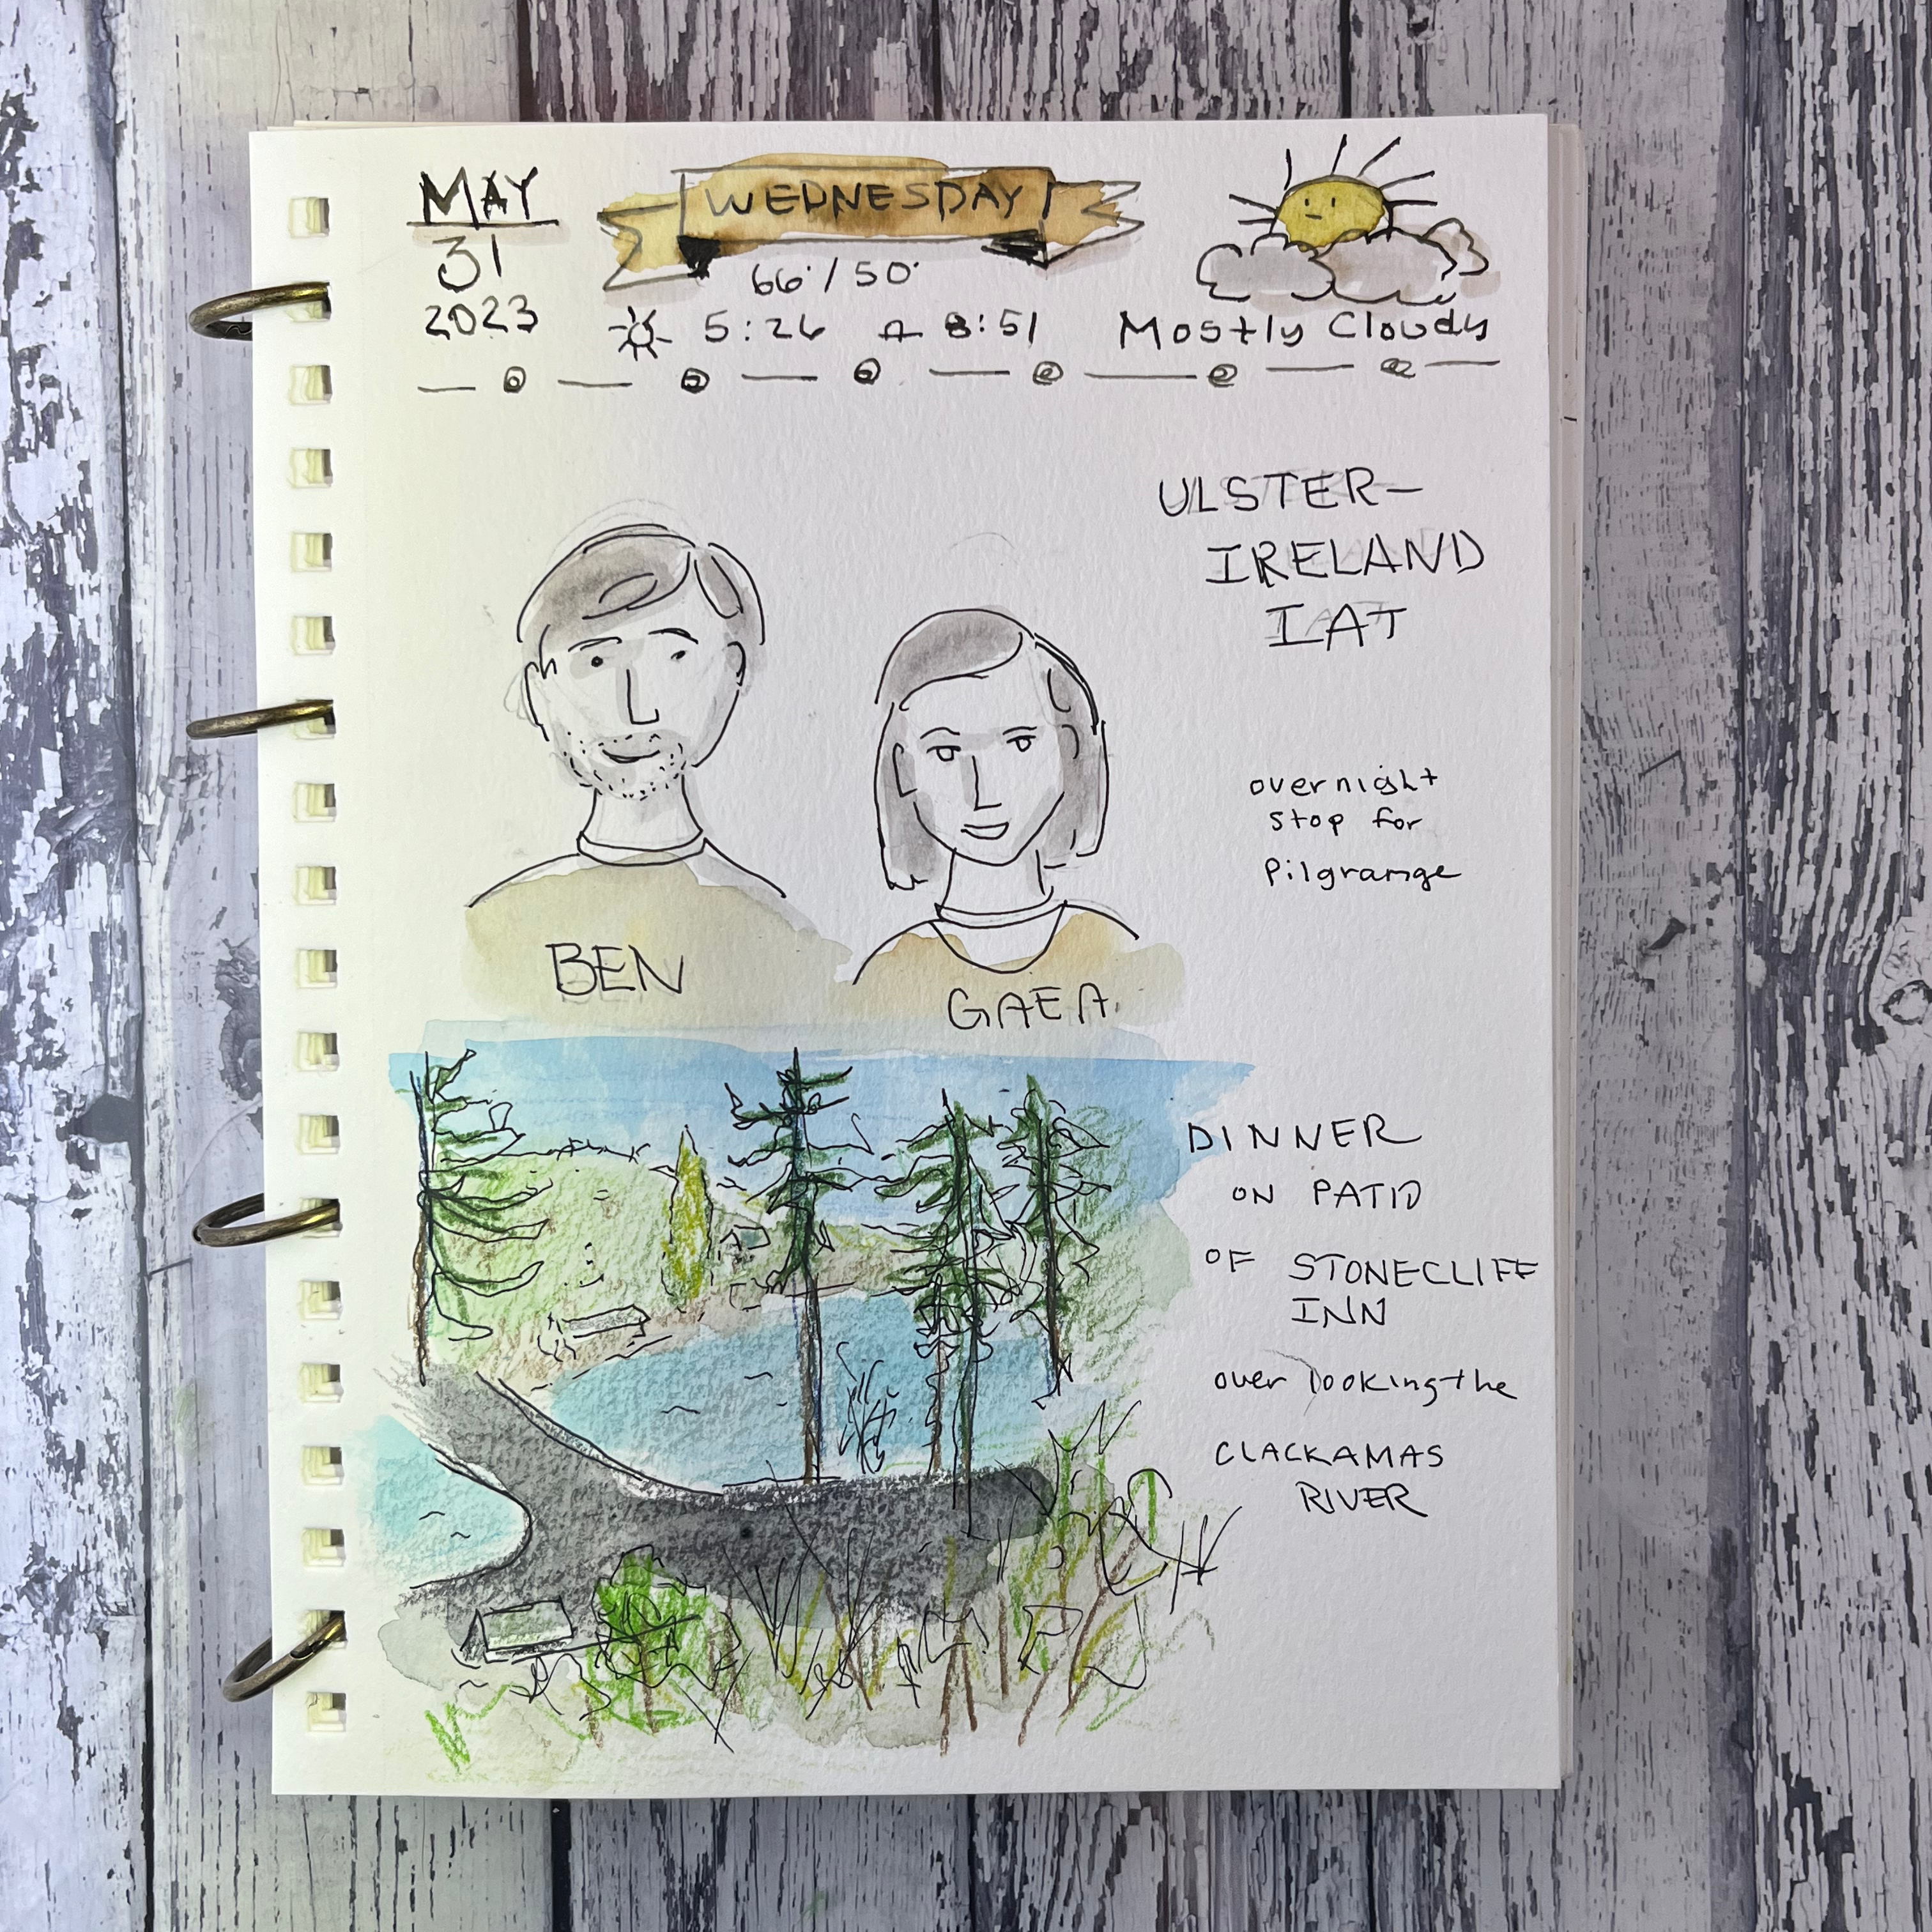 MAY
31
2023
WEDNESDAY
66°/50°
5:26 8:51
Mostly Cloudy
ULSTER-
IRELAND
IAT
overnight
stop for
Pilgramge
BEN
GAEA
DINNER
ON PATIO
OF STONECLIFF
INN
over looking the
CLACKAMAS
RIVER